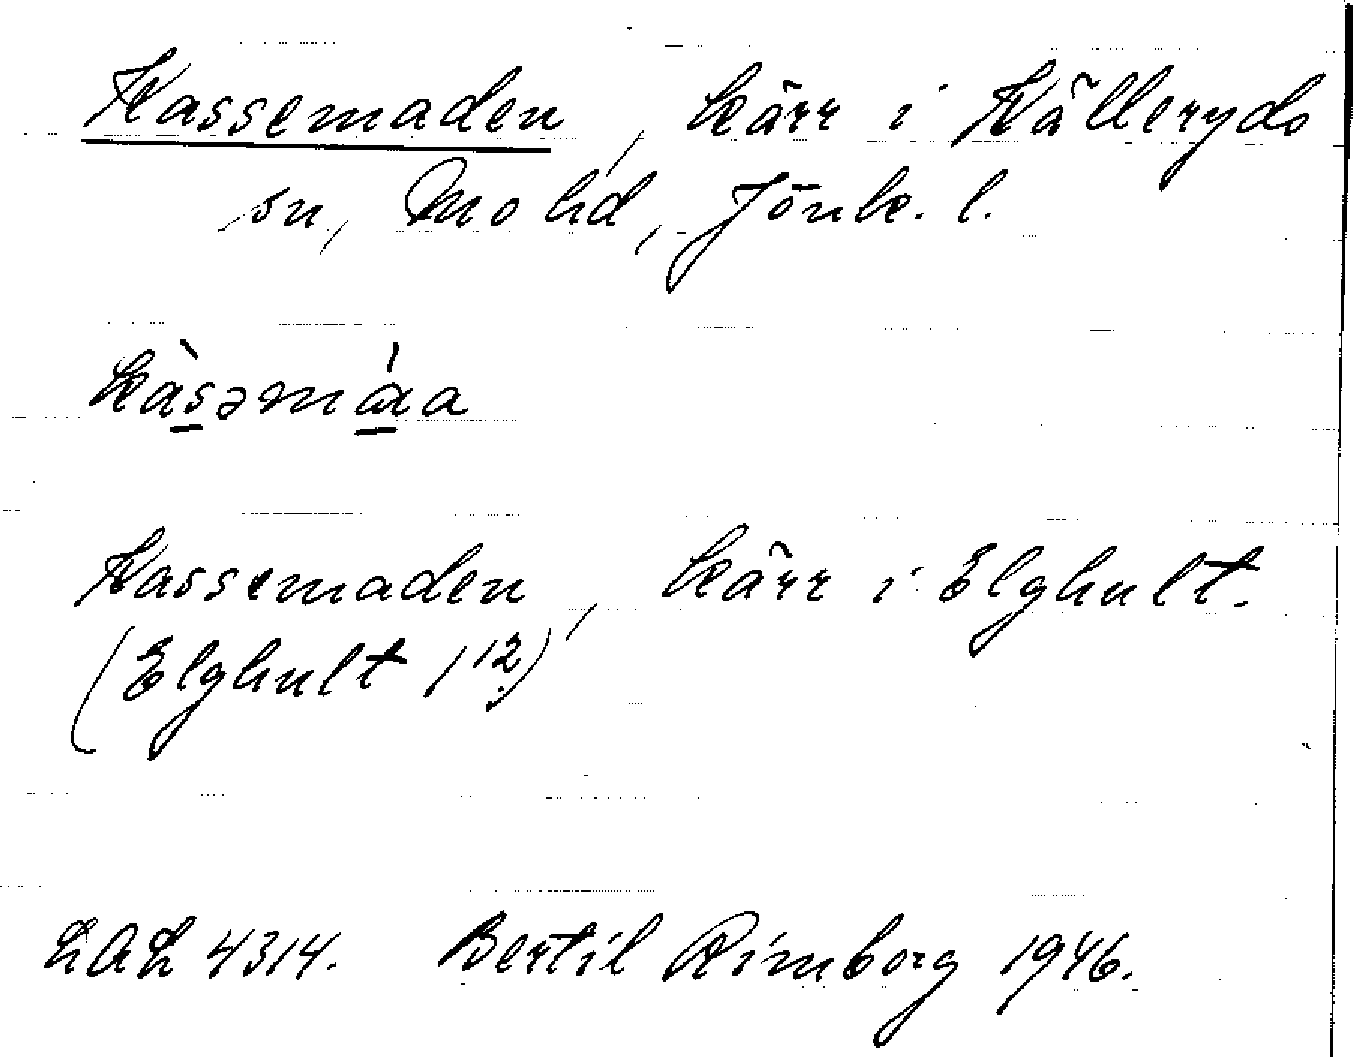 Kassemaden, kärr i Kålleryds
sn, Mo hd, Jönk. l.
kàsəmáa
Kassemaden, kärr i Elghult.
(Elghult 1¹²)
LAL 4314. Bertil Rimborg 1946.